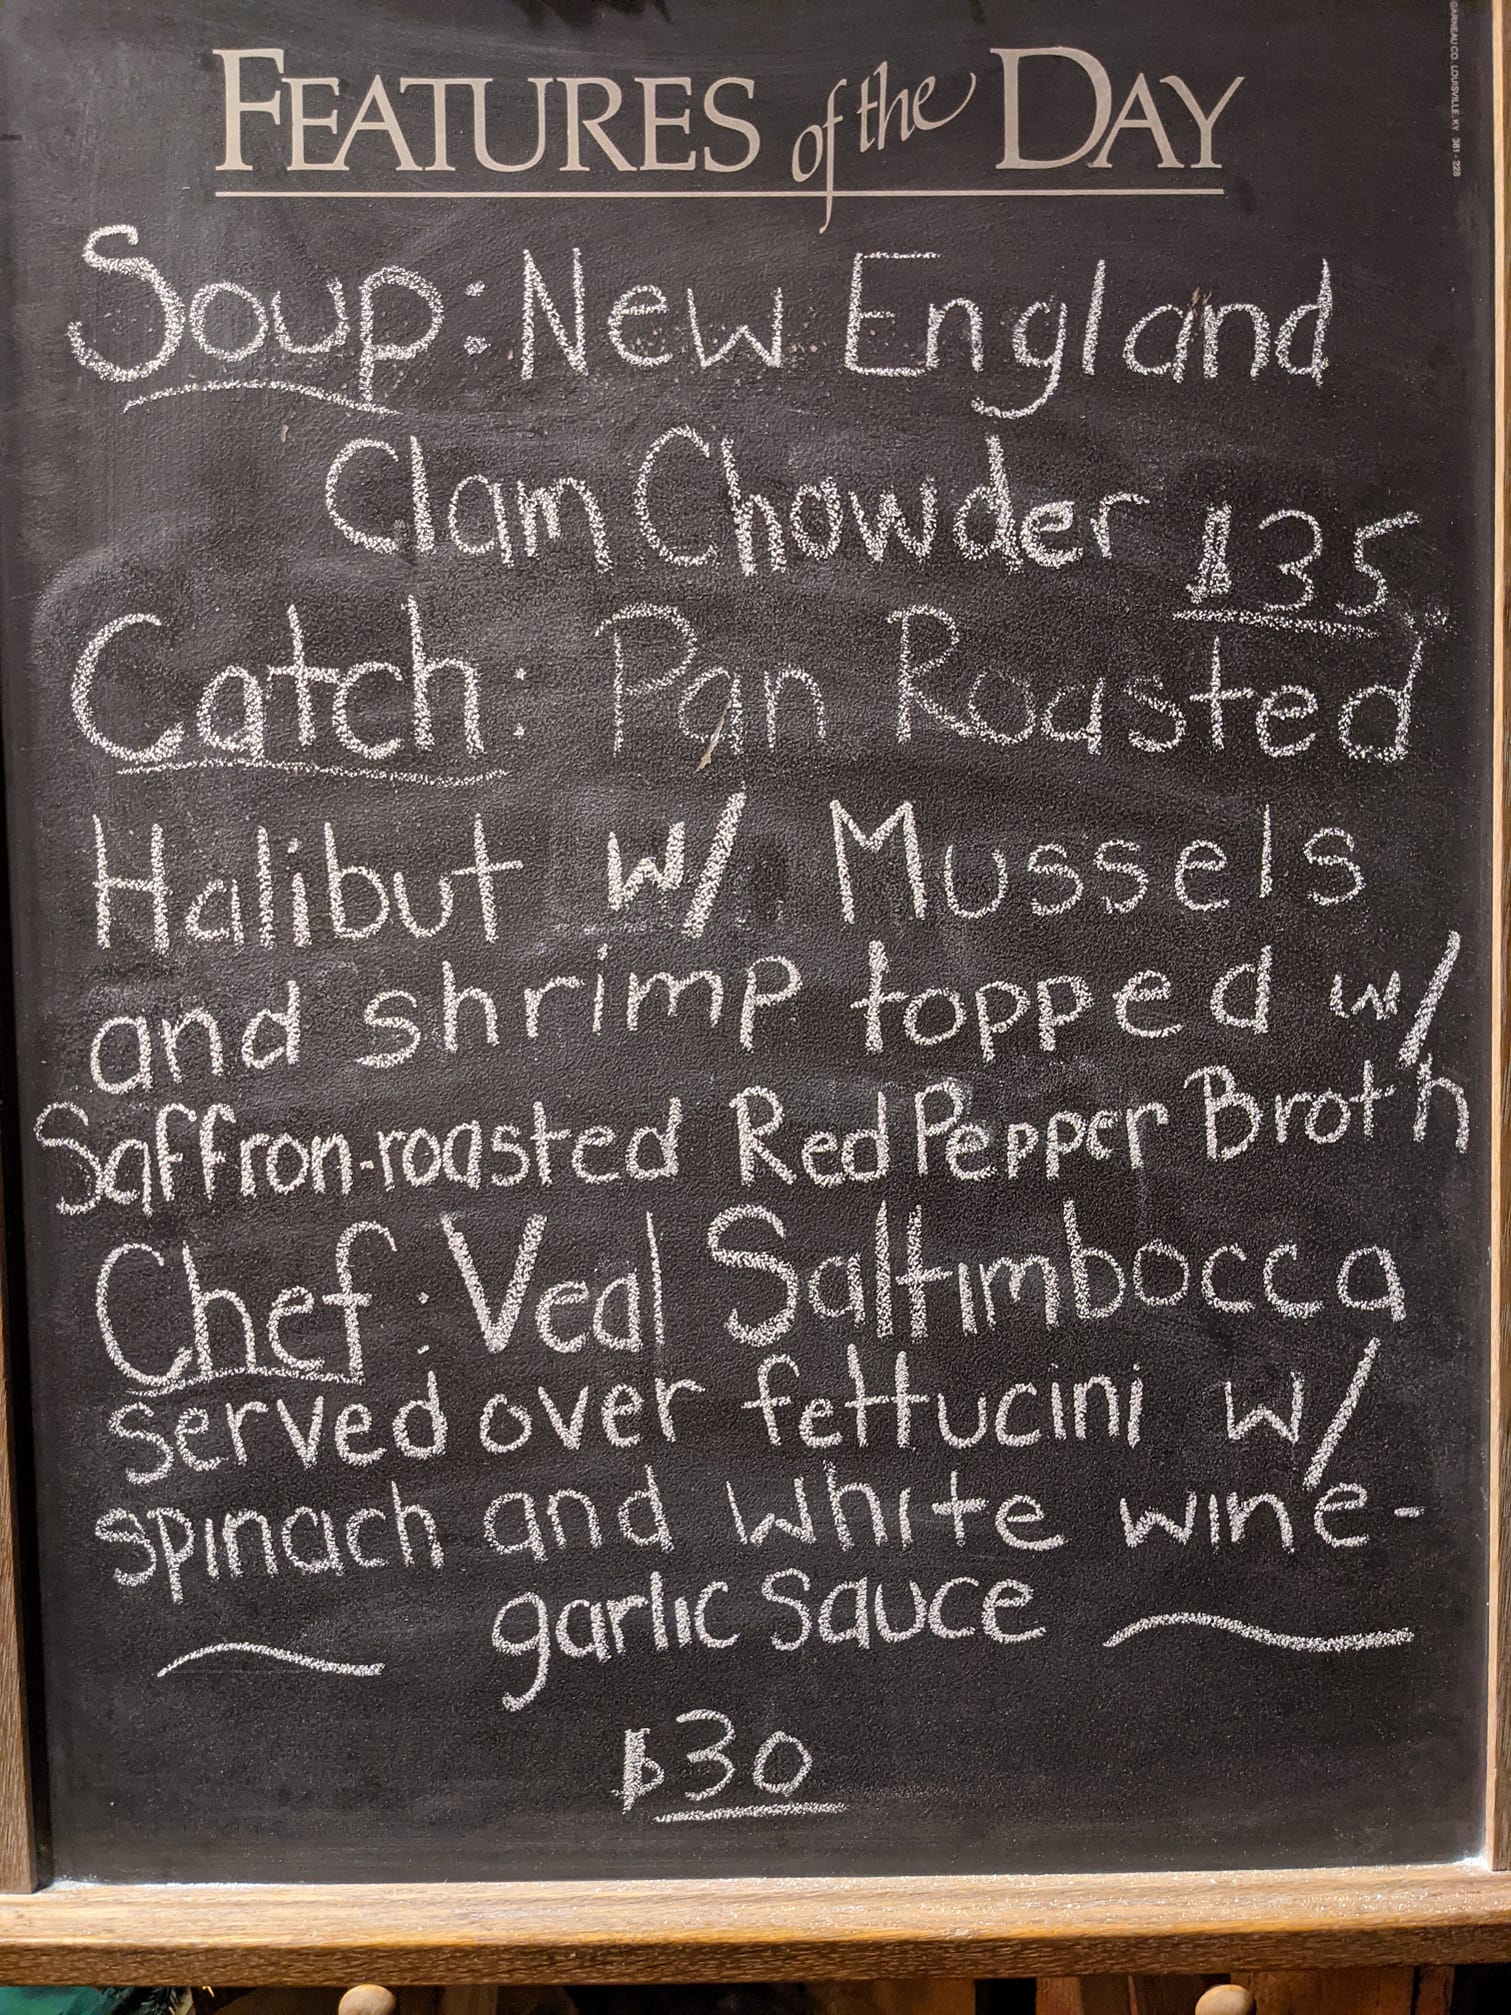 FEATURES of the DAY
GARNEAU CO. LOUISVILLE, KY 381-228
Soup: New England
Clam Chowder $35
Catch: Pan Roasted
Halibut w/ Mussels
and shrimp topped w/
Saffron-roasted Red Pepper Broth
Chef: Veal Saltimbocca
served over fettucini w/
spinach and white wine-
garlic sauce
$30